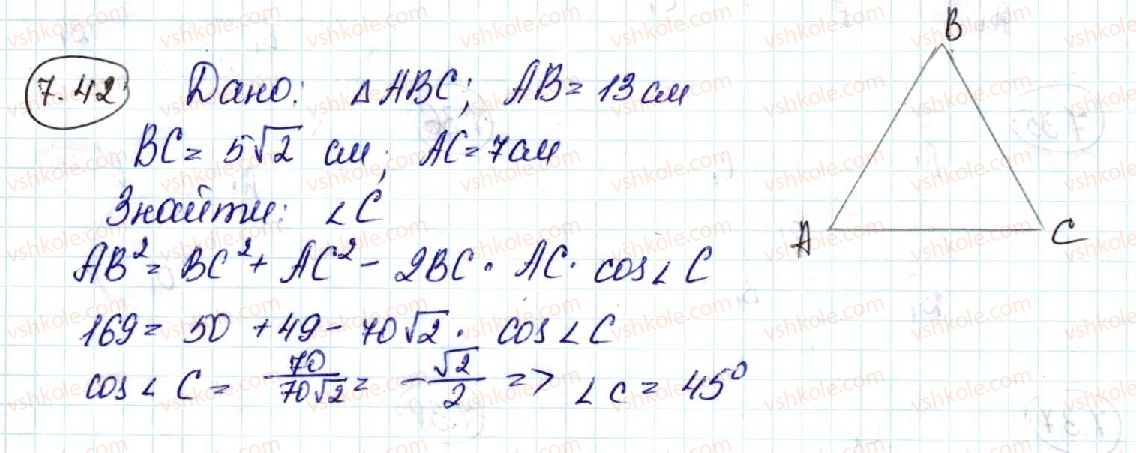 7.42 Дано: △ABC; AB = 13 см
BC = 5√2 см; AC = 7 см
Знайти: ∠C
AB² = BC² + AC² - 2BC · AC · cos∠C
169 = 50 + 49 - 70√2 · cos∠C
cos∠C = -70/70√2 = -√2/2 => ∠c = 45⁰
B
A
C
vshkole.com